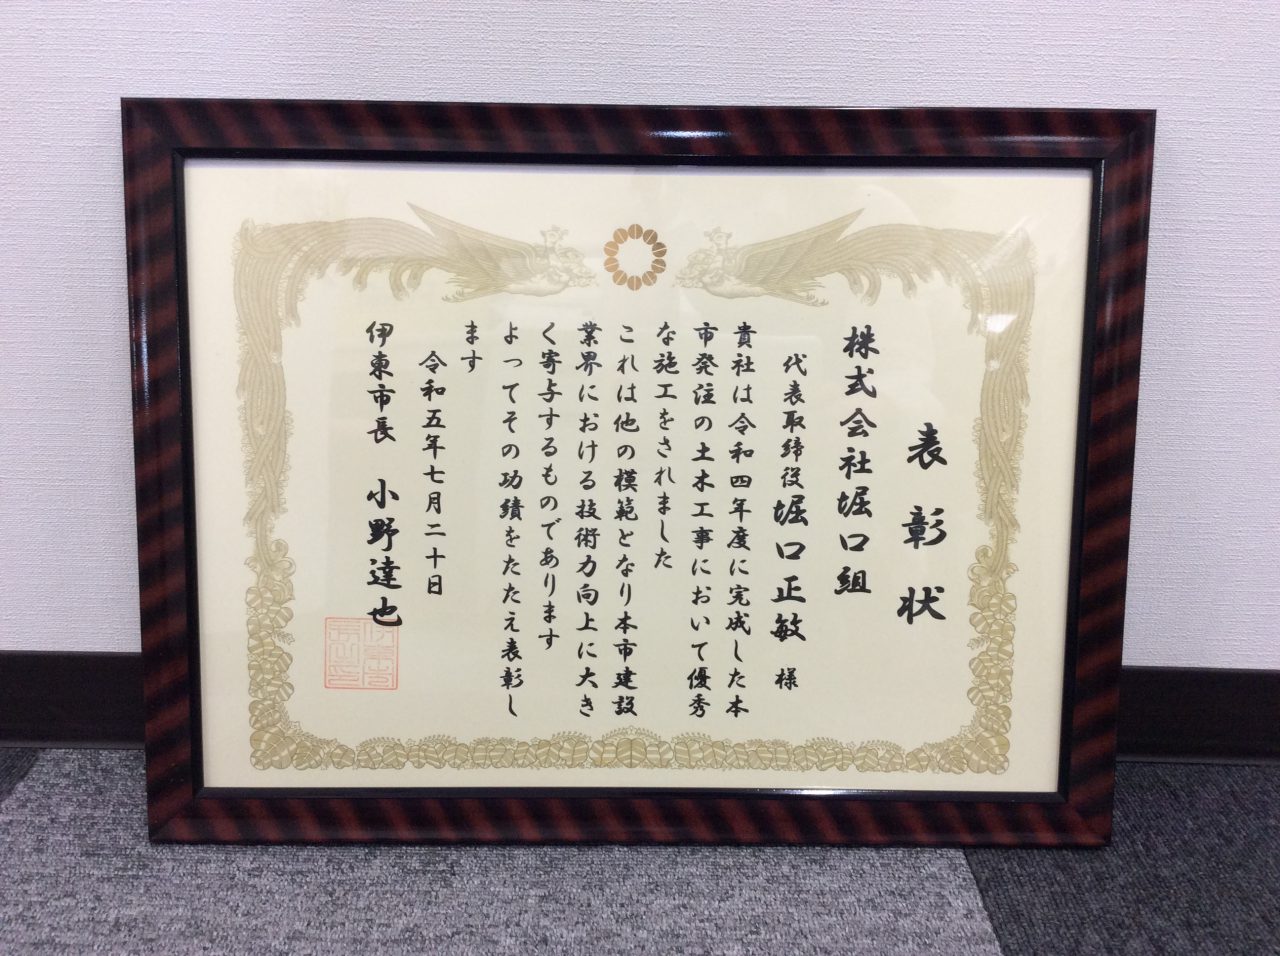 表彰状
株式会社堀口組
代表取締役 堀口正敏 様
貴社は令和四年度に完成した本
市発注の土木工事において優秀
な施工をされました
これは他の模範となり本市建設
業界における技術力向上に大き
く寄与するものであります
よってその功績をたたえ表彰し
ます
令和五年七月二十日
伊東市長 小野達也